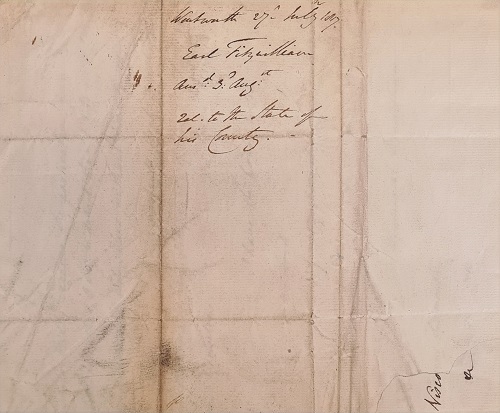 Wentworth 27th July
Earl Fitzwilliam
Ansd. 3d Augst
Rel. to the State of
his County.
Visco